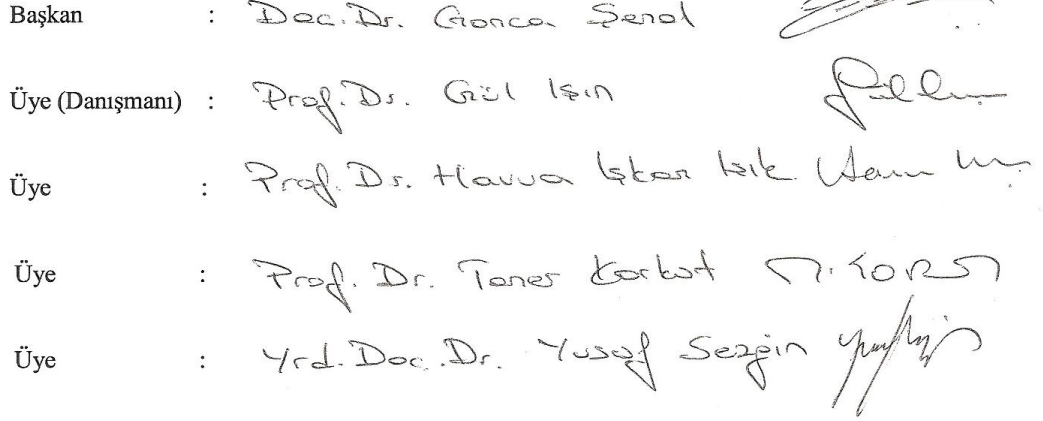 Başkan : Doc. Dr. Gonca Şenol
Üye (Danışmanı) : Prof. Dr. Gül Işın
Üye : Prof. Dr. Havva İşkan Işık
Üye : Prof. Dr. Taner Korkut T. KORKUT
Üye : Yrd. Doc. Dr. Yusuf Sezgin